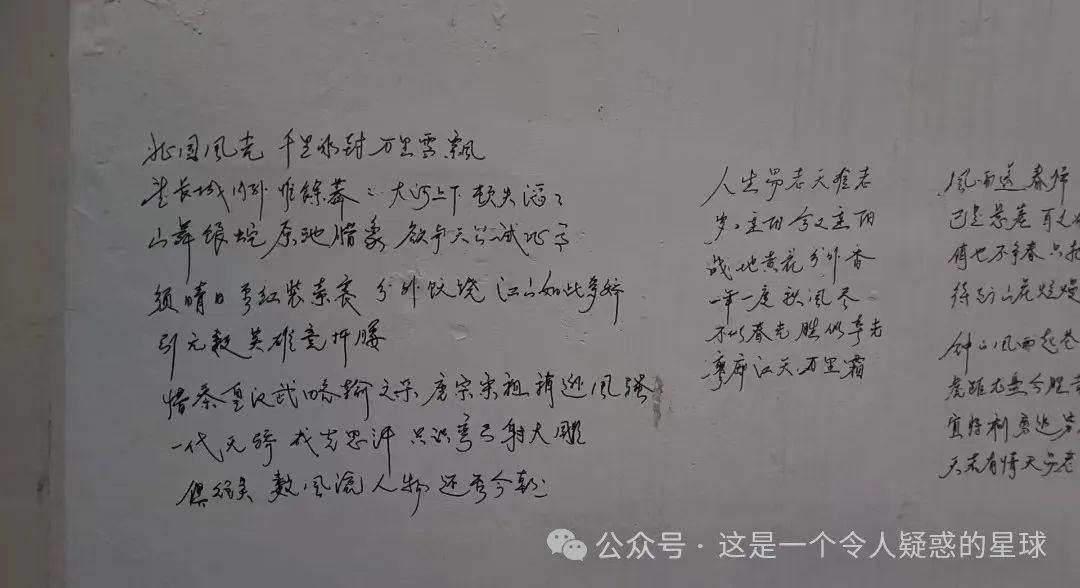 北国风光 千里冰封 万里雪飘
望长城内外 惟余莽々 大河上下 顿失滔々
山舞银蛇 原驰腊象 欲与天公试比高
须晴日 看红装素裹 分外妖娆 江山如此多娇
引无数英雄竞折腰
惜秦皇汉武略输文采 唐宗宋祖稍逊风骚
一代天骄 成吉思汗 只识弯弓射大雕
俱往矣 数风流人物 还看今朝
人生易老天难老
岁々重阳今又重阳
战地黄花分外香
一年一度秋风尽
不似春光胜似春光
寥廓江天万里霜
风雨送春归
已是悬崖
俏也不争春 只把
待到山花烂熳
钟山风雨起苍
虎踞龙盘今胜昔
宜将剩勇追穷
天若有情天亦老
公众号·这是一个令人疑惑的星球